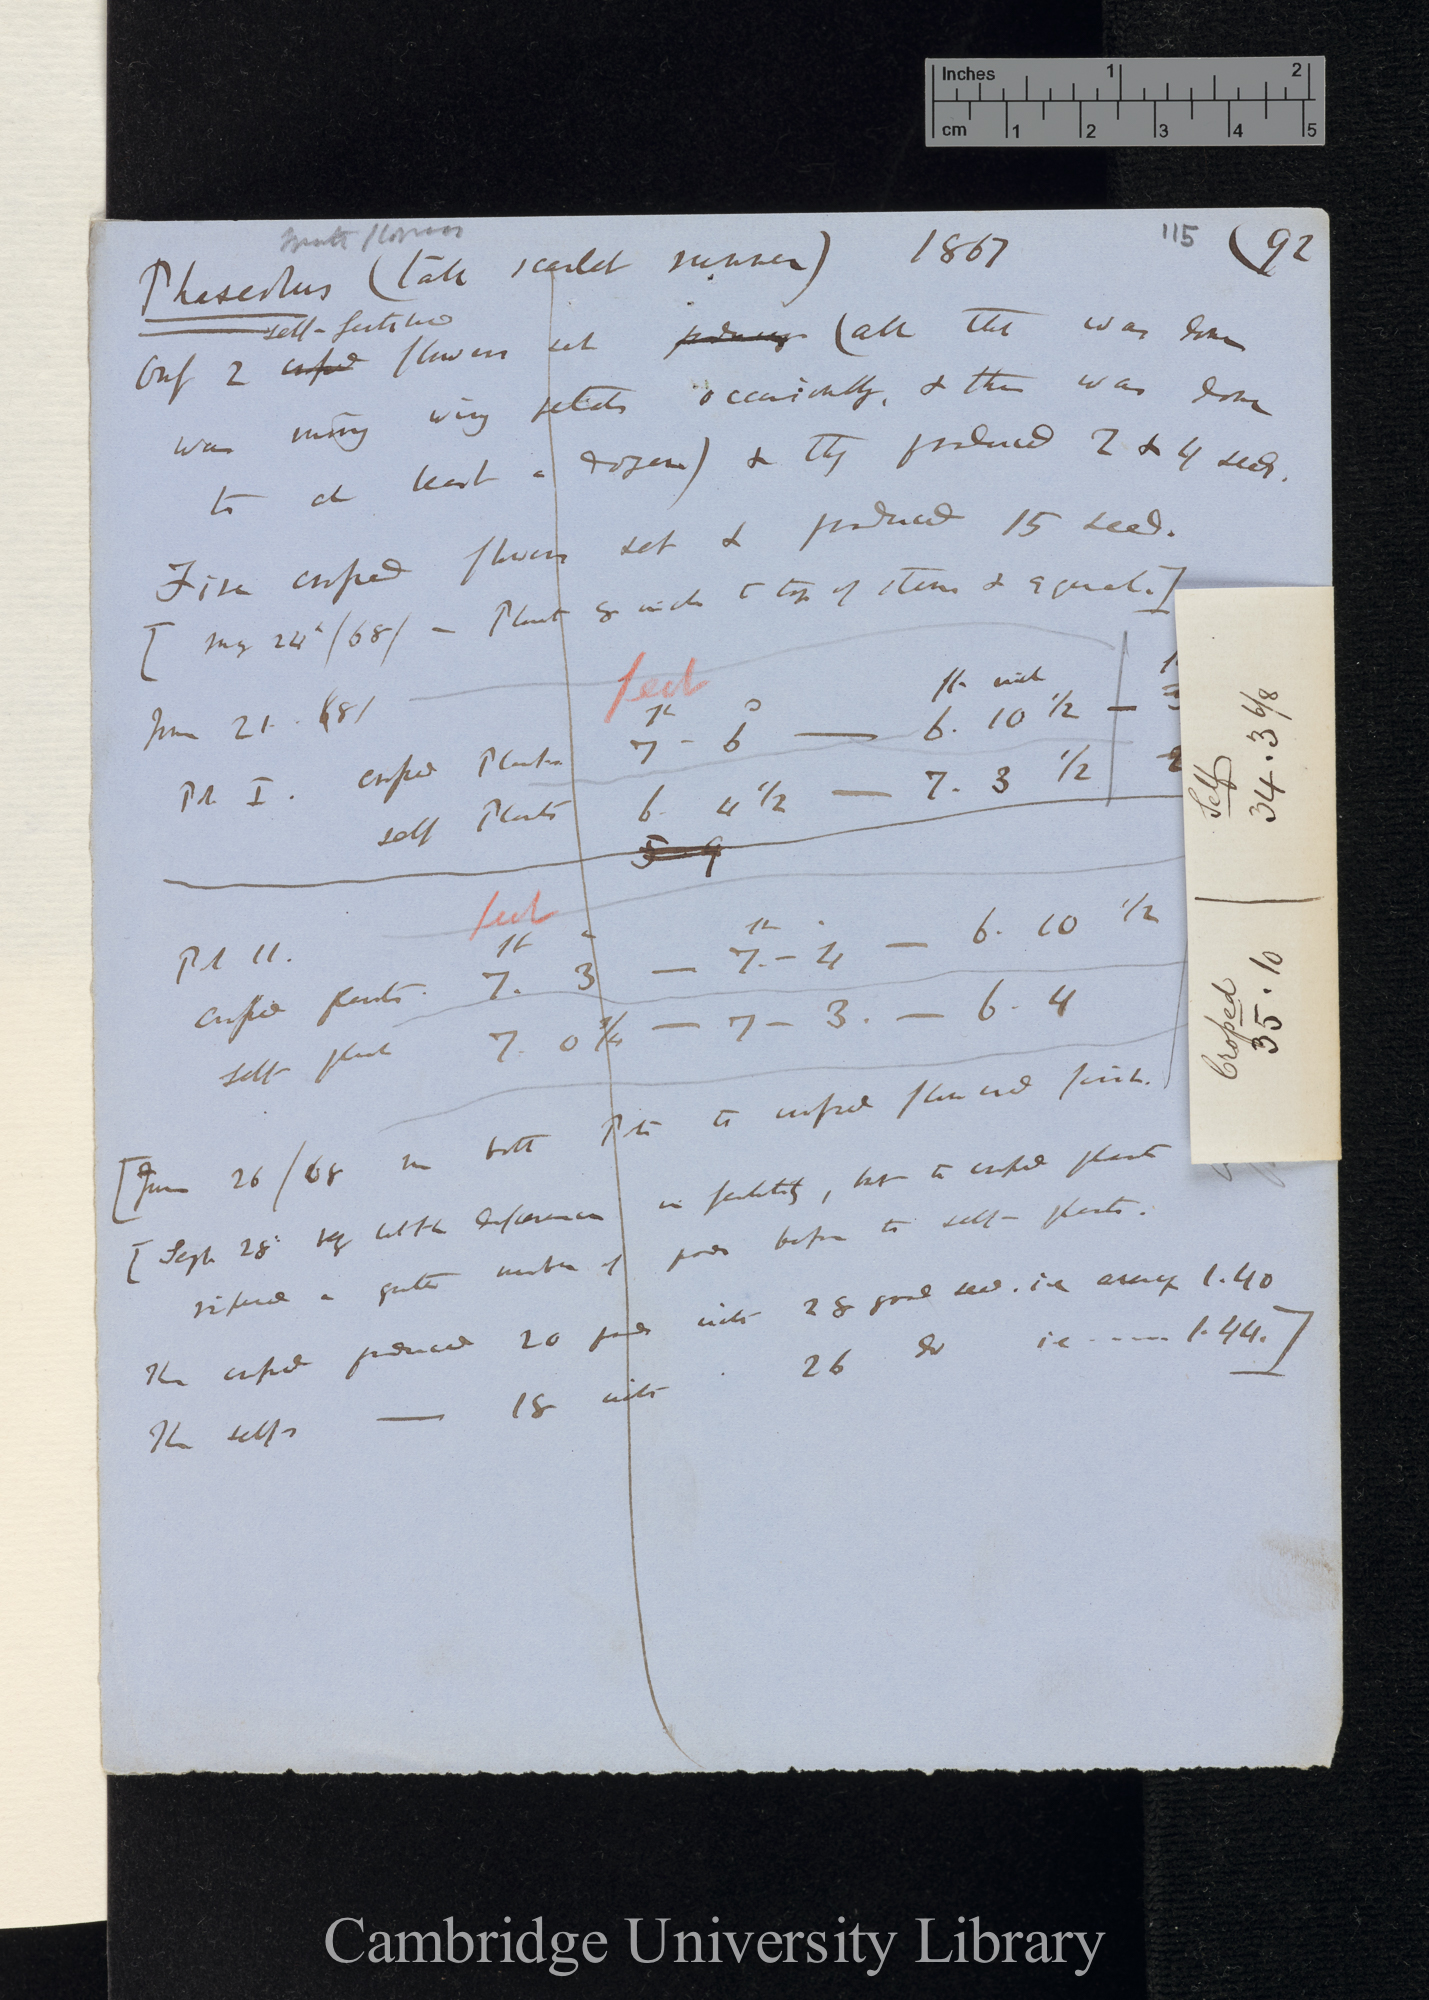 Inches 1 2
cm 1 2 3 4 5
115 (92
Phaseolus (tall scarlet runner) 1867
self-fertilised
Only 2 crossed flowers set (all that was done
was moving wing petals occasionally, & this was done
to at least a dozen) & they produced 2 & 4 seeds.
Five crossed flowers set & produced 15 seed.
[ May 24th/68/ — Plants 8 inch to top of stems & equal.]
June 21. 68/
feet
ft inch
Pot I. crossed Plants 7 - 6 — 6. 10 1/2 —
self Plants 6. 4 1/2 — 7. 3 1/2
5 9
feet
Pot II. ft ft
crossed plants. 7. 3 — 7. - 4 — 6. 10 1/2
self plant 7. 0 3/4 — 7 - 3. — 6. 4
[June 26/68 in both Pots the crossed flowered first.
[Sept 28th very little difference in fertility, but the crossed plants
ripened a greater number of pods before the self- plants.
The crossed produced 20 pods with 28 good seed. ie average 1.40
The selfs — 18 with 26 do ie ---- 1.44.]
Self
34.3 6/8
Crossed
35.10
Cambridge University Library